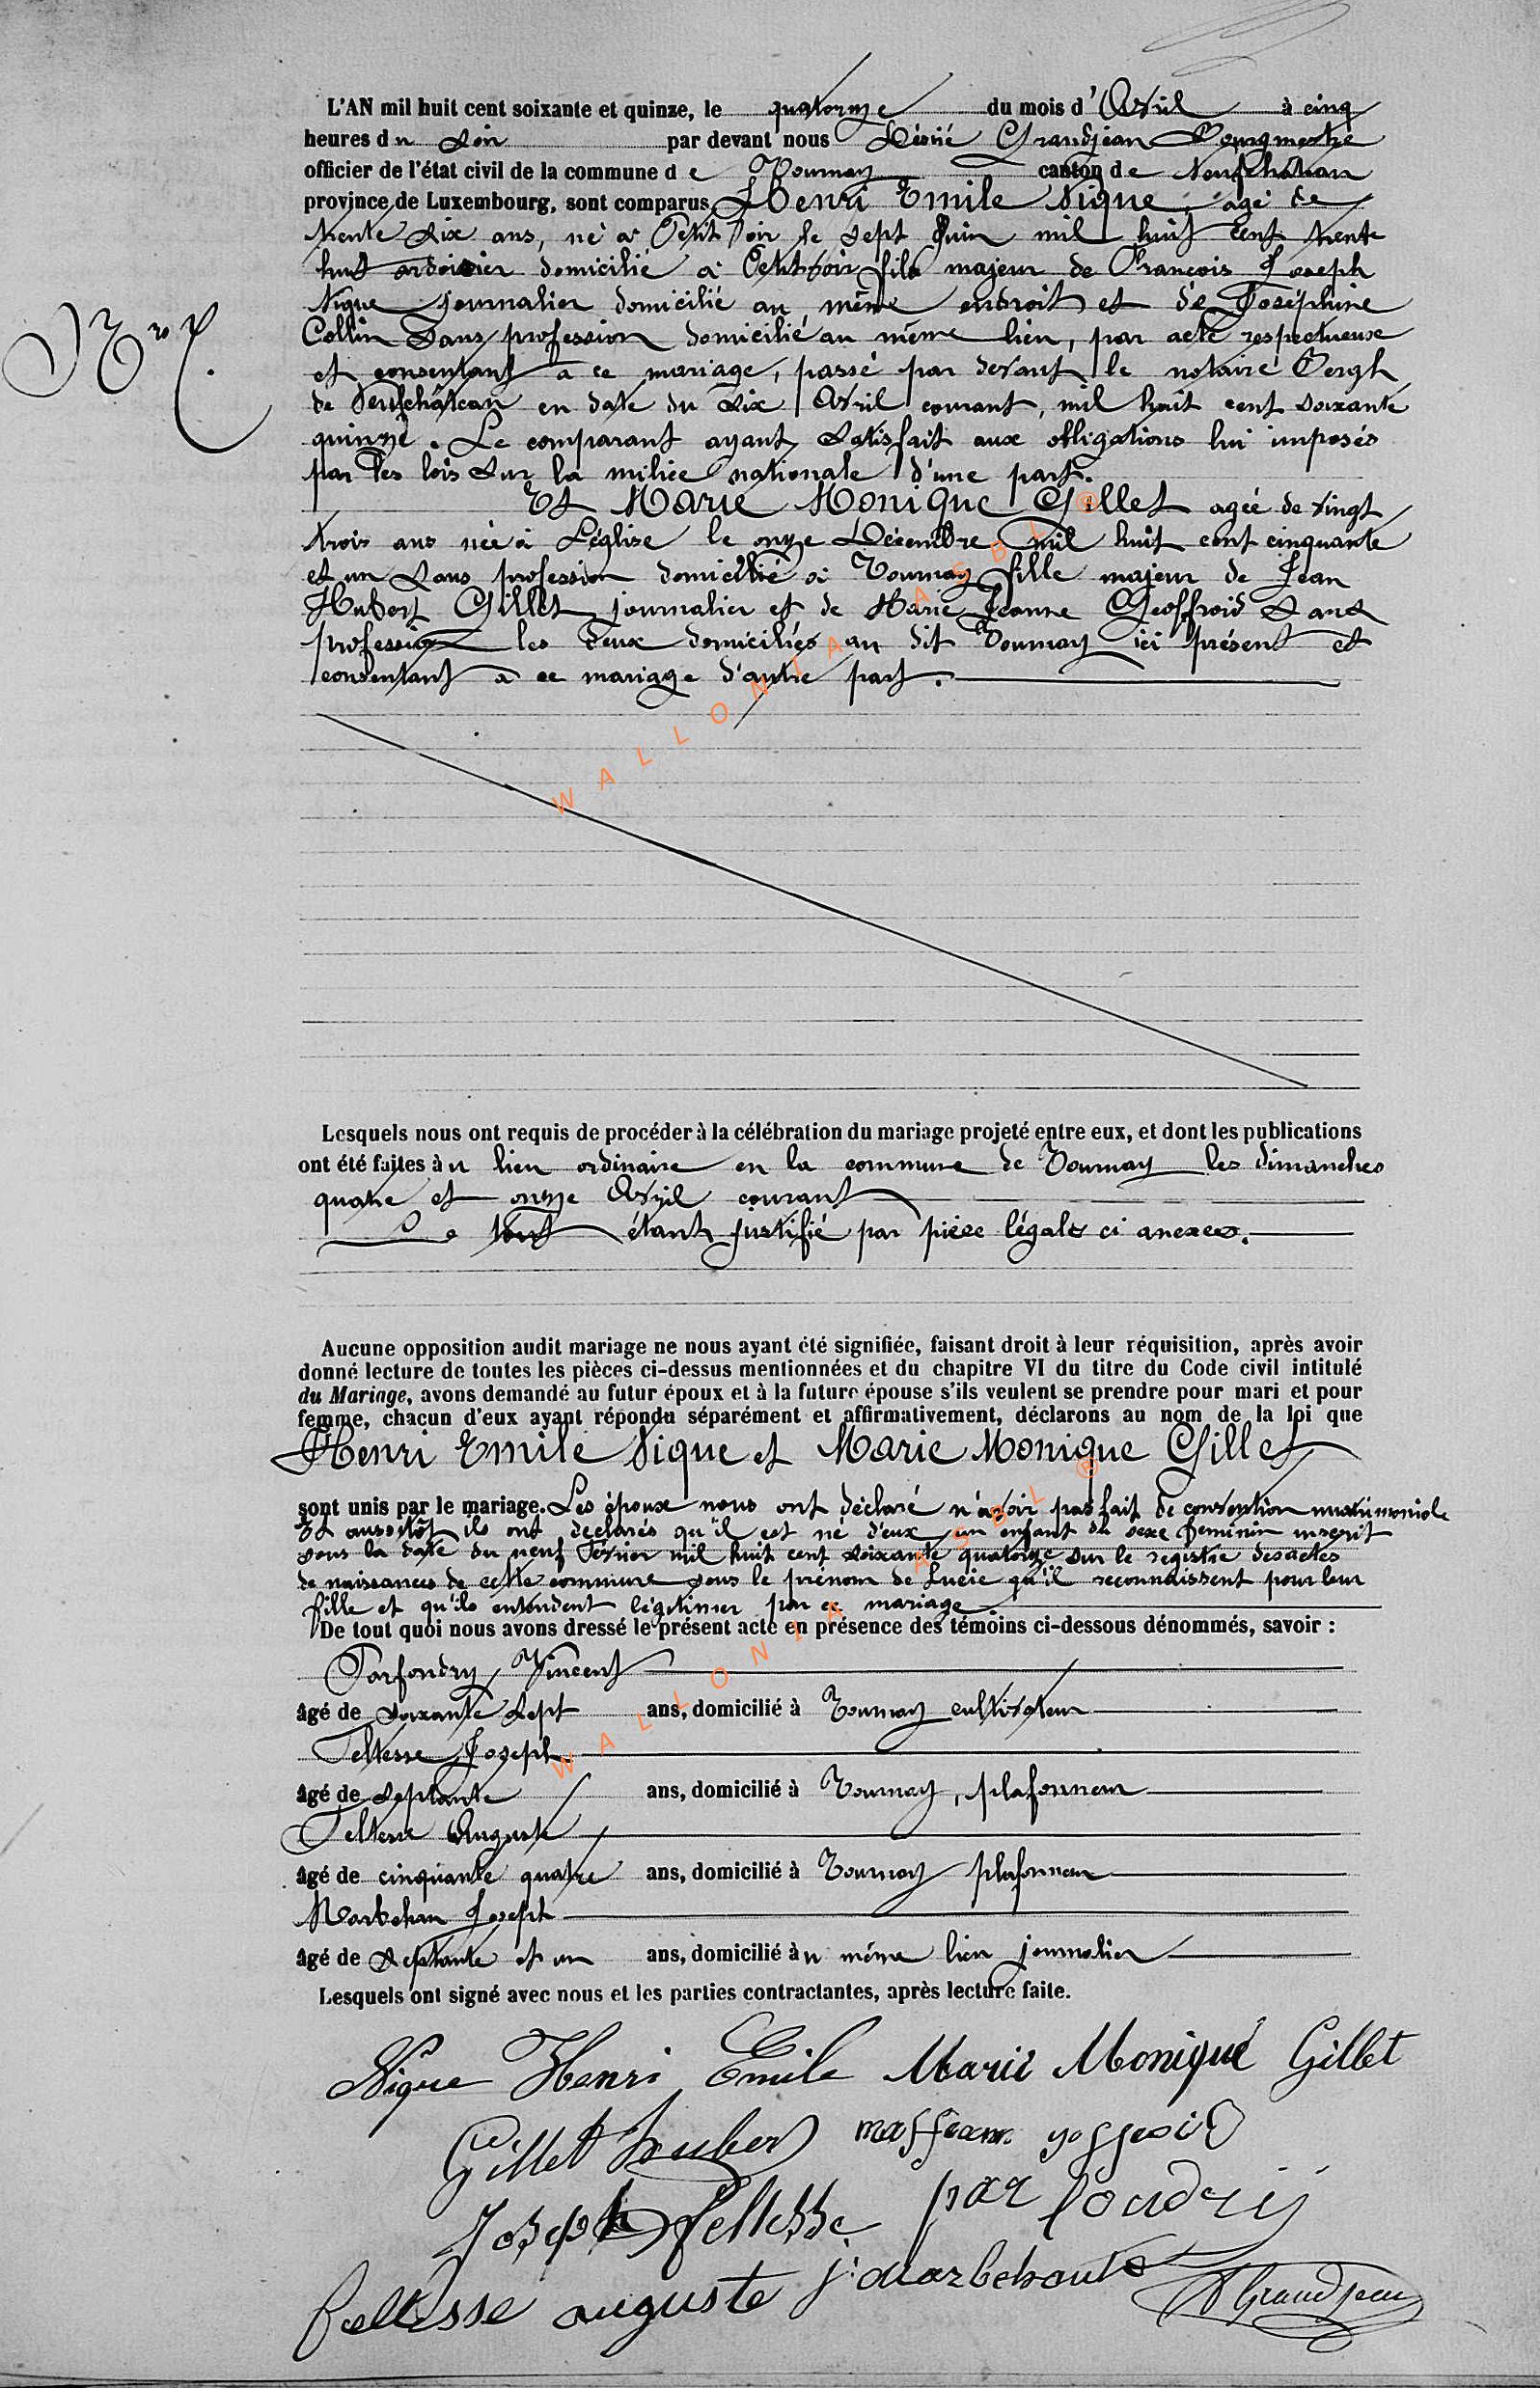 L'AN mil huit cent soixante et quinze, le quatorze du mois d'Avril à cinq
heures du soir par devant nous Désiré Grandjean Bourgmestre
officier de l'état civil de la commune de Tournay canton de Neufchâteau
province de Luxembourg, sont comparus Henri Emile Nique, agé de
trente six ans, né à Petitvoir le sept Juin mil huit cent trente
huit ardoisier domicilié à Petitvoir fils majeur de François Joseph
Nique journalier domicilié au même endroit et de Joséphine
N° 2.
Collin sans profession domicilié au même lieu, par acte respectueuse
et consentant à ce mariage, passé par devant le notaire
de Neufchâteau en date du six Avril courant, mil huit cent soixante
quinze. Le comparant ayant satisfait aux obligations lui imposés
par les lois sur la milice nationale d'une part.
Et Marie Monique Gillet agée de vingt
trois ans née à Léglise le onze Décembre mil huit cent cinquante
et un sans profession domicilié à Tournay fille majeur de Jean
Hubert Gillet journalier et de Marie Jeanne Geoffroid sans
profession les deux domiciliés au dit Tournay ici présent et
consentant à ce mariage d'autre part.
WALLONIA ASBL ®
Lesquels nous ont requis de procéder à la célébration du mariage projeté entre eux, et dont les publications
ont été faites au lieu ordinaire en la commune de Tournay les dimanches
quatre et onze Avril courant
Le tout étant justifié par pièce légales ci anexees.
Aucune opposition audit mariage ne nous ayant été signifiée, faisant droit à leur réquisition, après avoir
donné lecture de toutes les pièces ci-dessus mentionnées et du chapitre VI du titre du Code civil intitulé
du Mariage, avons demandé au futur époux et à la future épouse s'ils veulent se prendre pour mari et pour
femme, chacun d'eux ayant répondu séparément et affirmativement, déclarons au nom de la loi que
Henri Emile Nique et Marie Monique Gillet
sont unis par le mariage. Les époux nous ont déclaré n'avoir pas fait de convention matrimoniale
Et aussitôt ils ont declarés qu'il est né d'eux un enfant du sexe feminin inscrit
sous la date du neuf Fevrier mil huit cent soixante quatorze sur le registre des actes
de naissances de cette commune sous le prénom de Lucie qu'il reconnaissent pour leur
fille et qu'ils entendent légitimer par ce mariage
De tout quoi nous avons dressé le présent acte en présence des témoins ci-dessous dénommés, savoir :
WALLONIA ASBL ®
Parfondry Vincent
âgé de soixante sept ans, domicilié à Tournay cultivateur
Feltesse Joseph
âgé de septante ans, domicilié à Tournay, plafonneur
Feltesse Auguste
âgé de cinquante quatre ans, domicilié à Tournay plafonneur
Marbehan Joseph
âgé de septante et un ans, domicilié au même lieu journalier
Lesquels ont signé avec nous et les parties contractantes, après lecture faite.
Nique Henri Emile Marie Monique Gillet
Gillet huber
Joseph feltesse par fondry
feltesse auguste j: marbehant
D Grandjean